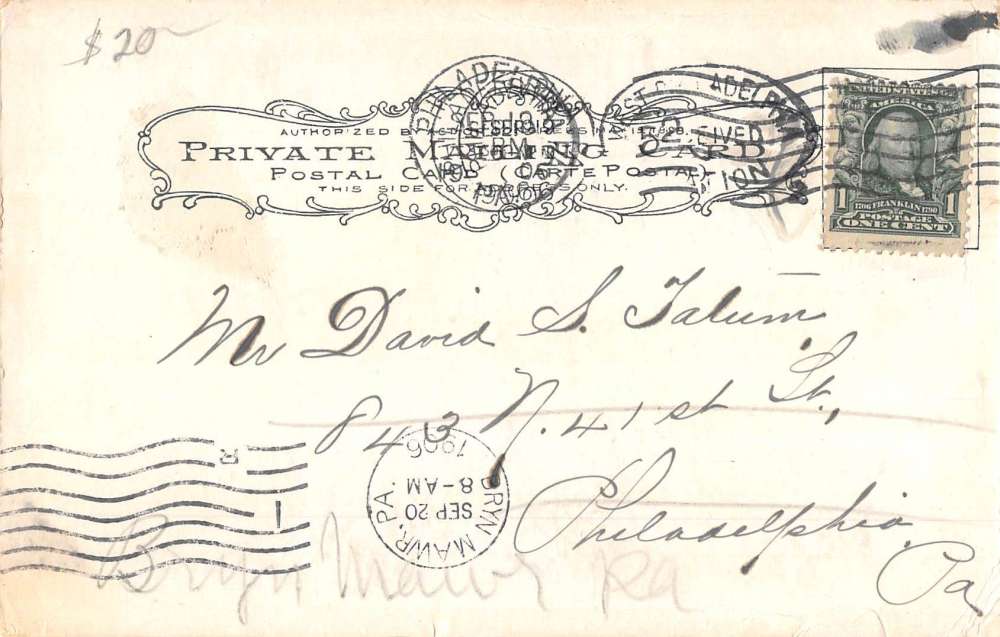 $20
AUTHORIZED BY ACT OF CONGRESS MAY 19, 1898.
PRIVATE MAILING CARD
POSTAL CARD (CARTE POSTALE)
THIS SIDE FOR ADDRESS ONLY.
PHILADELPHIA
SEP 19
PM
1906
RECEIVED
STATION
UNITED STATES OF
AMERICA
1 1706 FRANKLIN 1790 1
POSTAGE
ONE CENT
Mr David S. Tatum.
843 N. 41st St.,
Philadelphia
Pa
R
1
BRYN MAWR, PA.
SEP 20
8-AM
1906
Bryn Mawr Pa